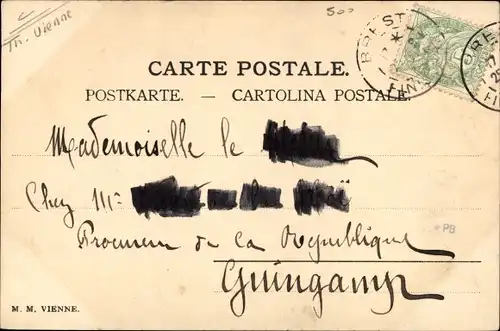 Th. Vienne
500
BREST
FIN
CARTE POSTALE.
POSTKARTE. — CARTOLINA POSTALE.
Mademoiselle le
Chez Mr
Procureur de la République
Guingamp
*PB
M. M. VIENNE.